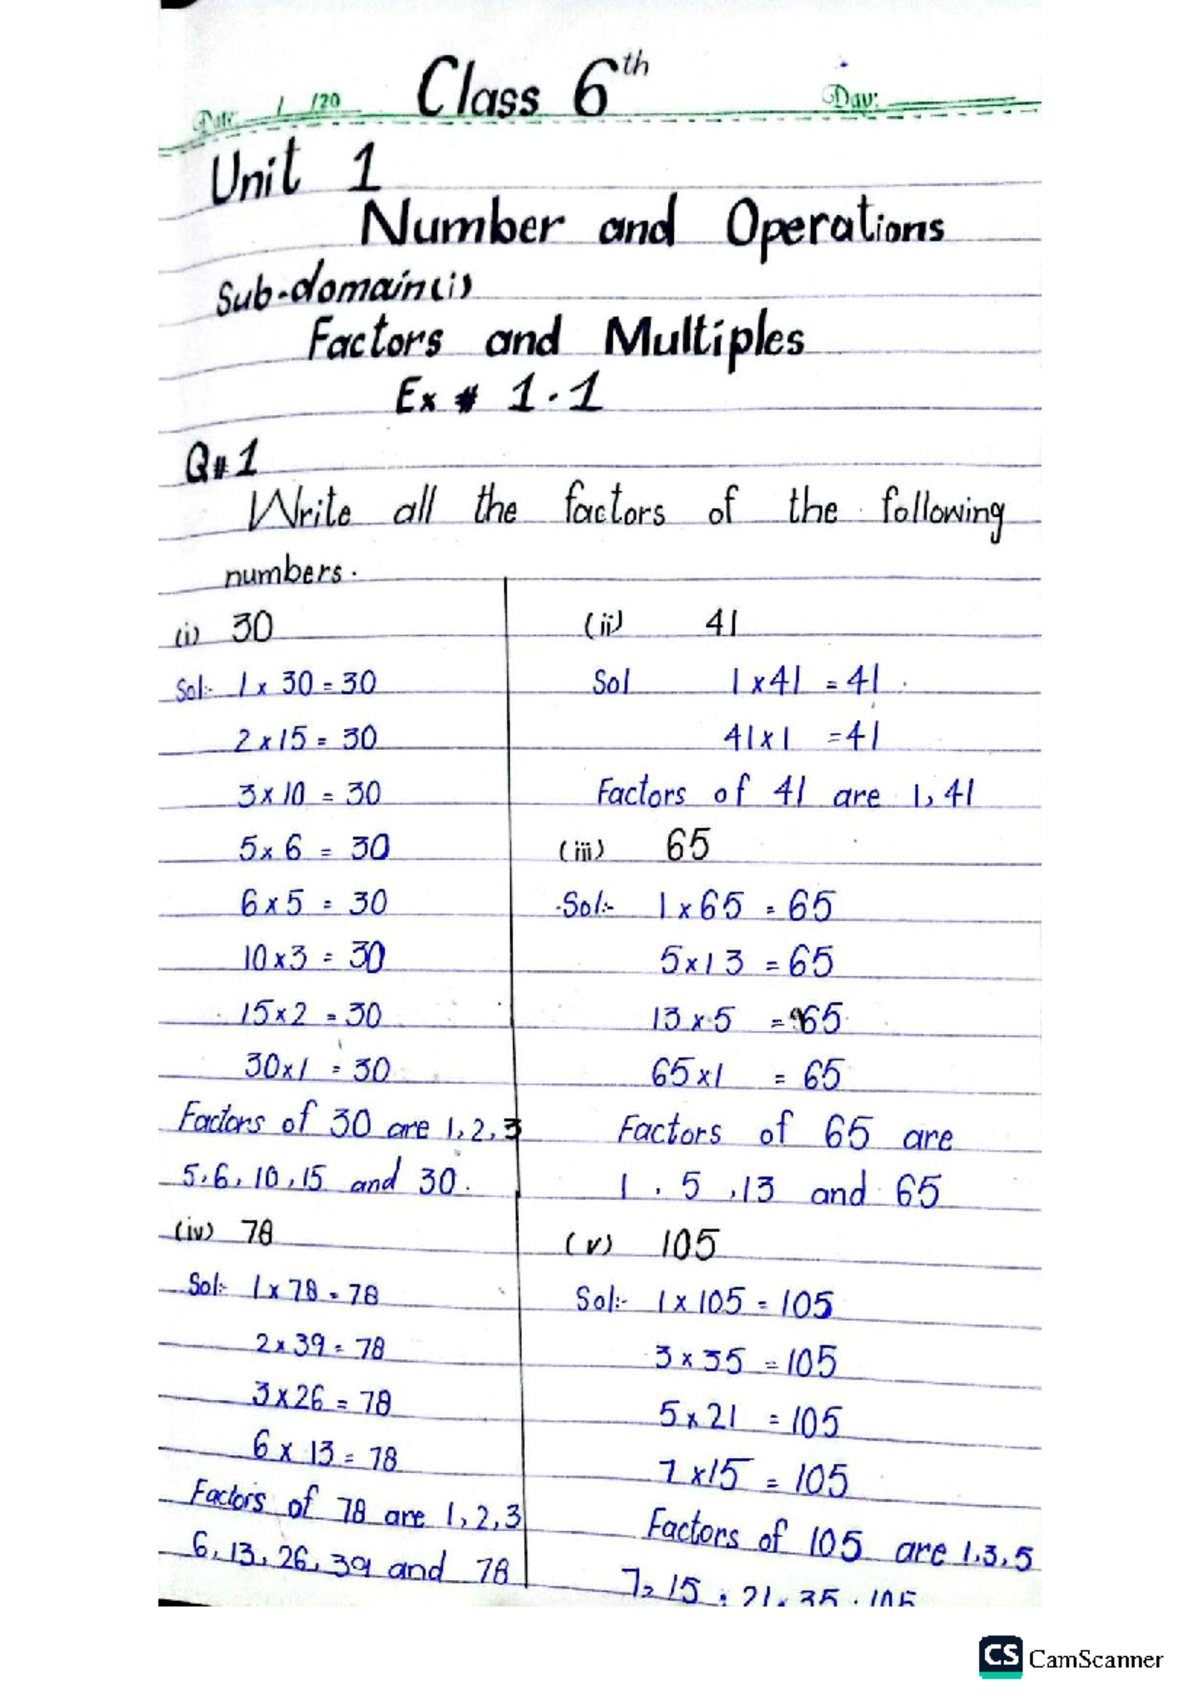 Class 6th
Date: / /20
Day:
Unit 1
Number and Operations
Sub-domain(i)
Factors and Multiples
Ex # 1.1
Q#1
Write all the factors of the following
numbers.
(i) 30
Sol:- 1 x 30 = 30
2 x 15 = 30
3 x 10 = 30
5 x 6 = 30
6 x 5 = 30
10 x 3 = 30
15 x 2 = 30
30 x 1 = 30
Factors of 30 are 1, 2, 3
5, 6, 10, 15 and 30.
(ii) 41
Sol 1 x 41 = 41
41 x 1 = 41
Factors of 41 are 1, 41
(iii) 65
Sol:- 1 x 65 = 65
5 x 13 = 65
13 x 5 = 65
65 x 1 = 65
Factors of 65 are
1, 5, 13 and 65
(iv) 78
Sol:- 1 x 78 = 78
2 x 39 = 78
3 x 26 = 78
6 x 13 = 78
Factors of 78 are 1, 2, 3
6, 13, 26, 39 and 78
(v) 105
Sol:- 1 x 105 = 105
3 x 35 = 105
5 x 21 = 105
7 x 15 = 105
Factors of 105 are 1, 3, 5
7, 15, 21, 35, 105
CS CamScanner